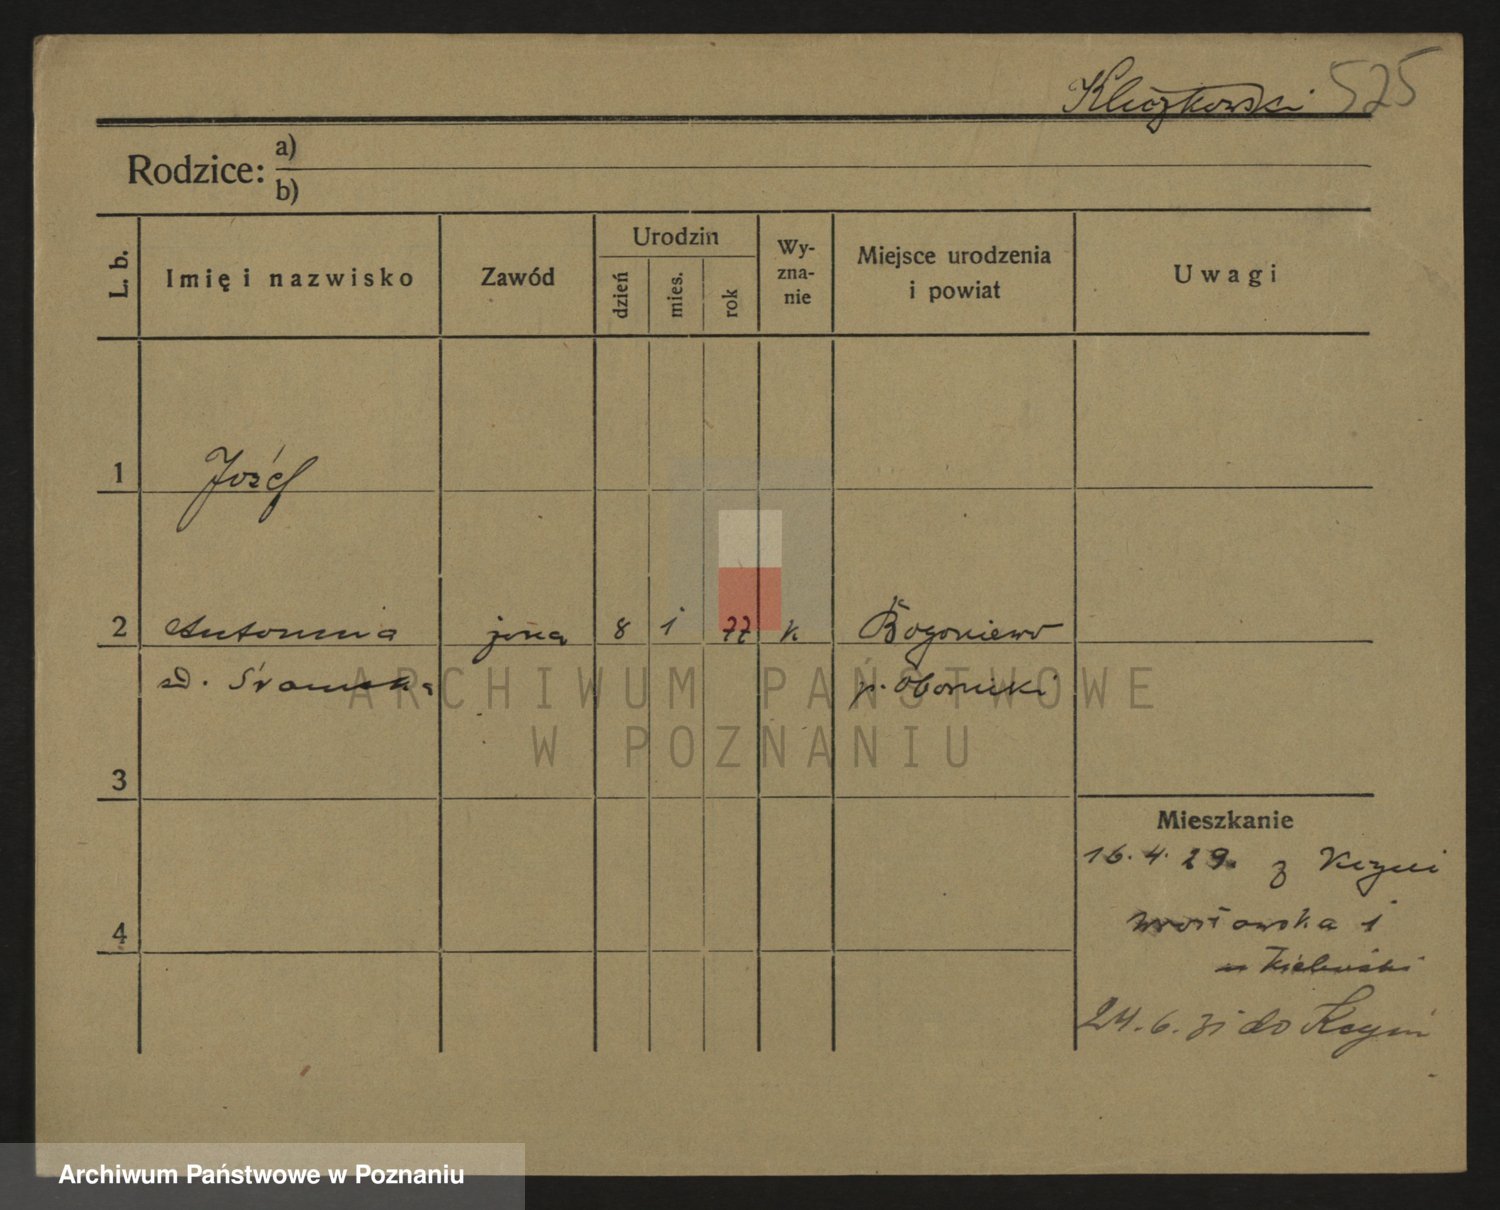 Kluczkowski 525
Rodzice: a)
b)
L. b.
Imię i nazwisko
Zawód
Urodzin
dzień
mies.
rok
Wy-
zna-
nie
Miejsce urodzenia
i powiat
Uwagi
1 Józef
2 Antonina żona 8 1 77 k Bogoniewo
zd. p. Oborniki
ARCHIWUM PAŃSTWOWE
W POZNANIU
3
Mieszkanie
16.4.29. z Kcyni
4
1
24.6.31 do Kcyni
Archiwum Państwowe w Poznaniu